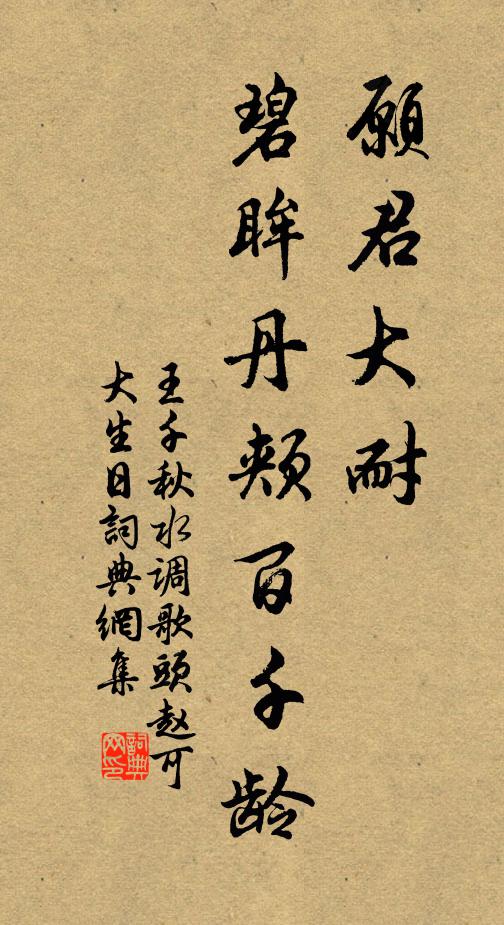 願君大耐
碧眸丹頰百千龄
王千秋水调歌頭赵可
大生日詞典網集
詞典网印